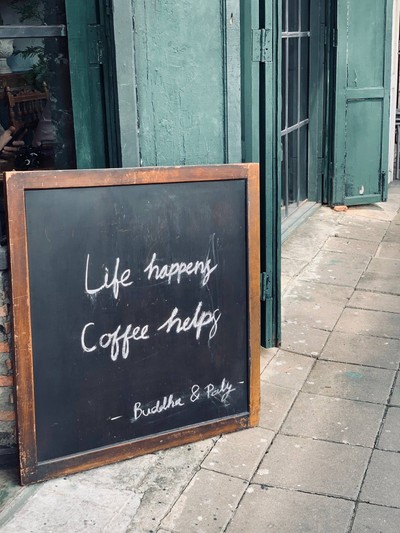 Life happens
Coffee helps
- Buddha & Pady -